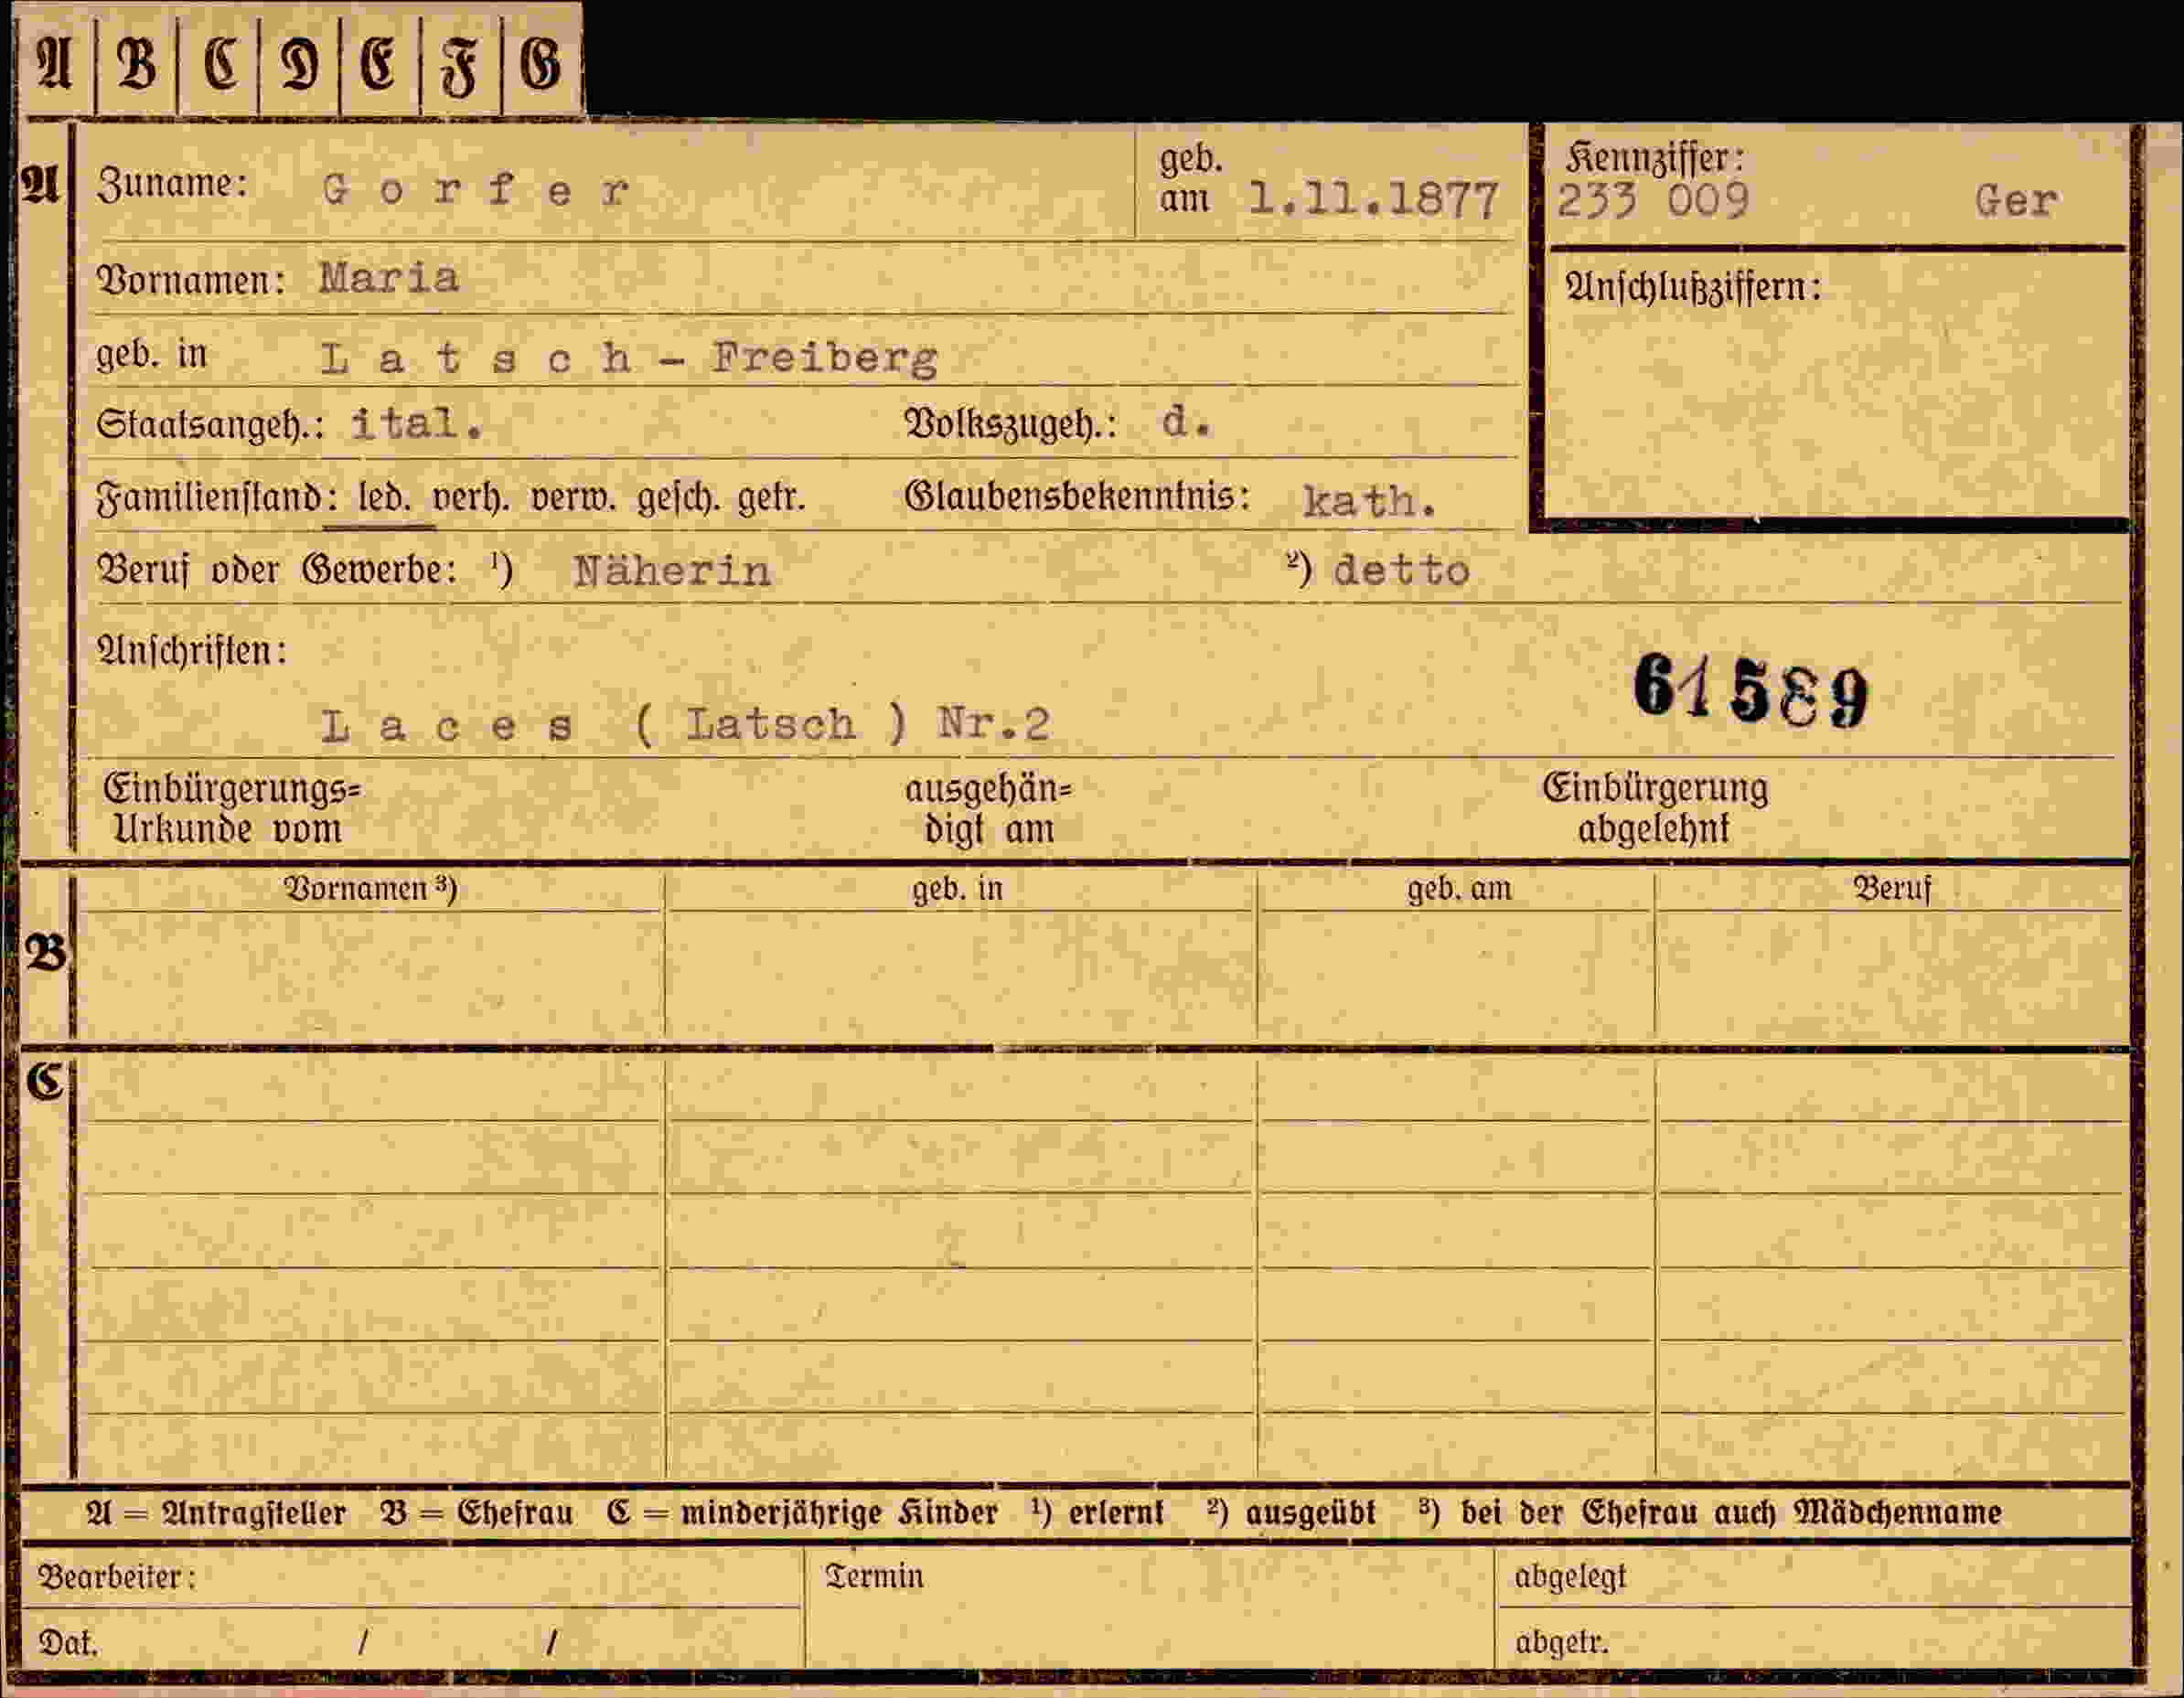 A B C D E F G
A Zuname: Gorfer geb. am 1.11.1877 Kennziffer: 233 009 Ger
Vornamen: Maria Anschlußziffern:
geb. in Latsch - Freiberg
Staatsangeh.: ital. Volkszugeh.: d.
Familienstand: led. verh. verw. gesch. getr. Glaubensbekenntnis: kath.
Beruf oder Gewerbe: ¹) Näherin ²) detto
Anschriften:
61589
Laces ( Latsch ) Nr.2
Einbürgerungs= ausgehän= Einbürgerung
Urkunde vom digt am abgelehnt
Vornamen ³) geb. in geb. am Beruf
B
C
A = Antragsteller B = Ehefrau C = minderjährige Kinder ¹) erlernt ²) ausgeübt ³) bei der Ehefrau auch Mädchenname
Bearbeiter: Termin abgelegt
Dat. / / abgetr.